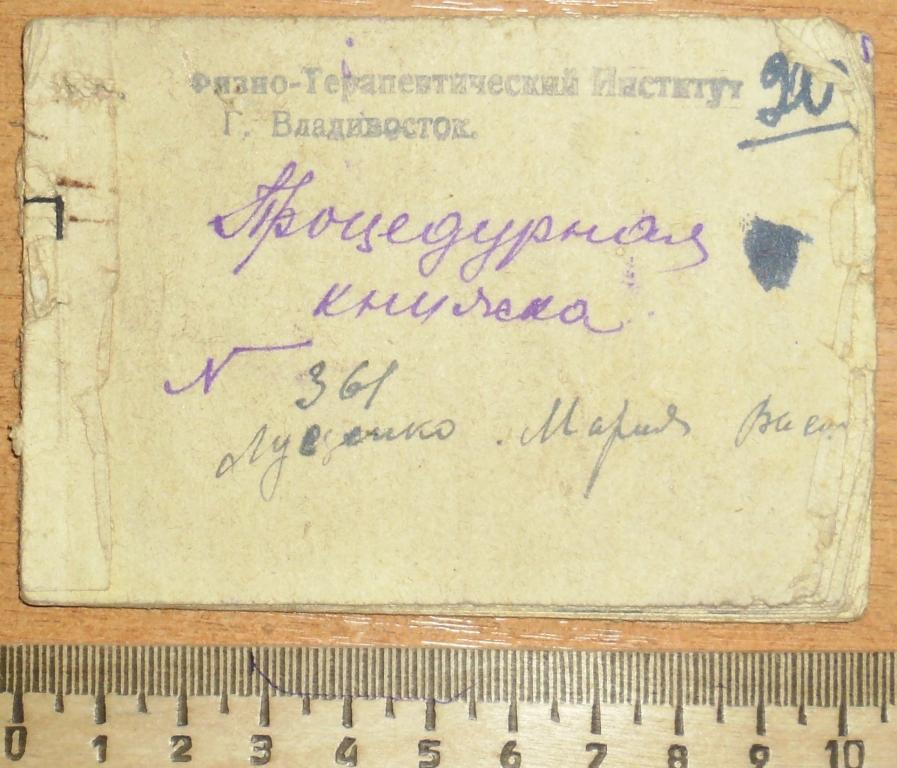 Физно-Терапевтический Институт
Г. Владивосток.
Процедурная
книжка
N 361
Луценко Мария
0 1 2 3 4 5 6 7 8 9 10